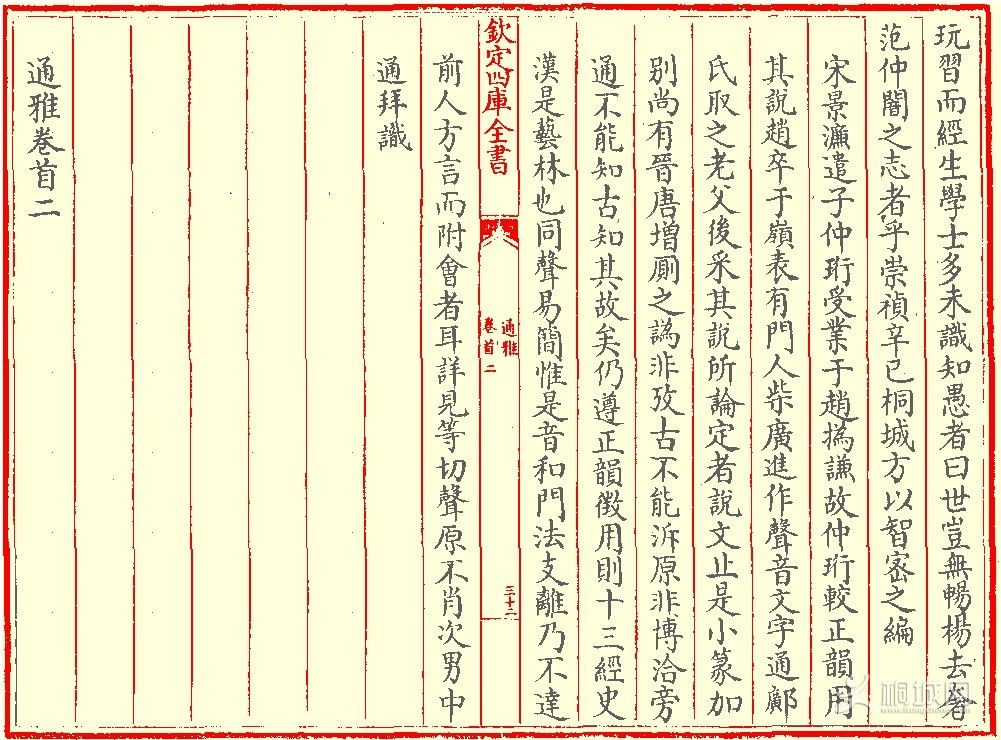 玩習而經生學士多未識知愚者曰世豈無暢楊去奢
范仲闇之志者乎崇禎辛巳桐城方以智密之編
宋景濂遣子仲珩受業于趙撝謙故仲珩較正韻用
其說趙卒于嶺表有門人柴廣進作聲音文字通鄺
氏取之老父後采其說所論定者說文止是小篆加
別尚有晉唐增厠之譌非攷古不能泝原非博洽旁
通不能知古知其故矣仍遵正韻徵用則十三經史
欽定四庫全書
通雅
卷首二
三十二
漢是藝林也同聲易簡惟是音和門法支離乃不達
前人方言而附會者耳詳見等切聲原不肖次男中
通拜識
通雅卷首二
桐城网